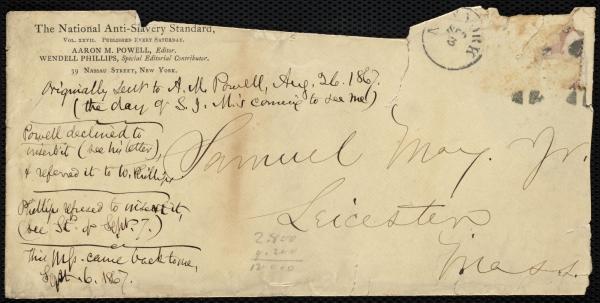 The National Anti-Slavery Standard,
VOL. XXVII. PUBLISHED EVERY SATURDAY.
AARON M. POWELL, Editor.
WENDELL PHILLIPS, Special Editorial Contributor.
39 NASSAU STREET, NEW YORK.
Originally sent to A. M. Powell, Aug. 26. 1867.
(the day of S. J. M's coming to see me)
Powell declined to
insert it (see his letter),
& referred it to W. Phillips
Phillips refused to insert it,
(see St'd. of Sept. 7.)
This Mss. came back to me,
Sept. 6. 1867.
Samuel May, Jr.
Leicester
Mass.
2.800
9.200
12000